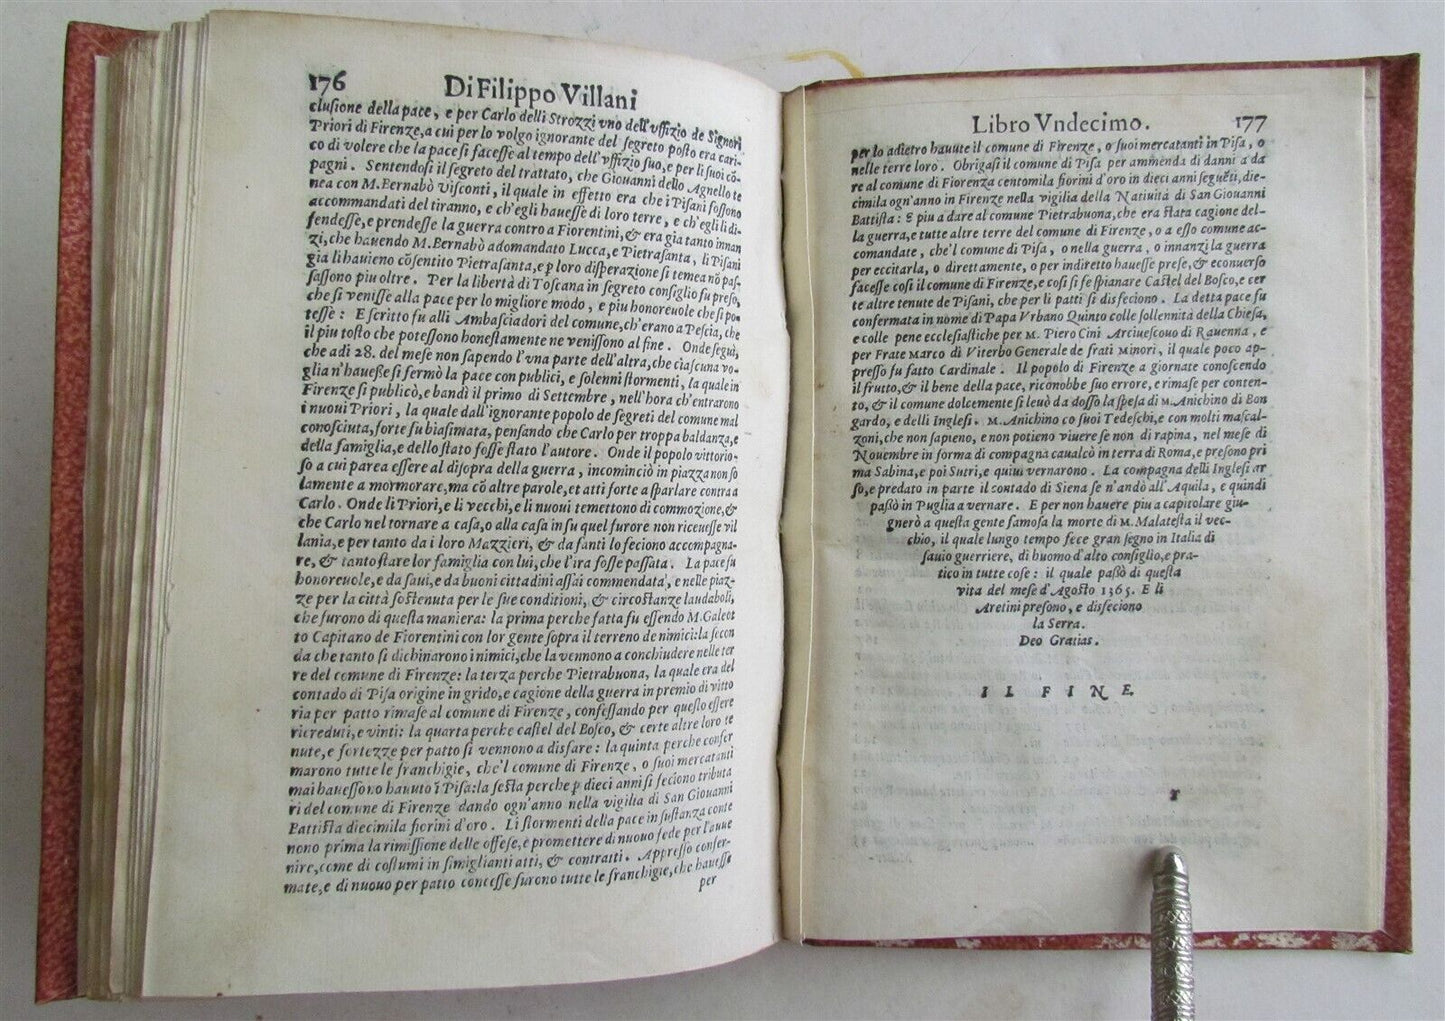 176 Di Filippo Villani
clusione della pace, e per Carlo delli Strozzi vno dell'vffizio de Signori
Priori di Firenze, a cui per lo volgo ignorante del segreto posto era cari-
co di volere che la pace si facesse al tempo dell'vffizio suo, e per li suoi cō-
pagni. Sentendosi il segreto del trattato, che Giouanni dello Agnello te
nea con M. Bernabò Visconti, il quale in effetto era che i Pisani fossono
accommandati del tiranno, e ch'egli hauesse di loro terre, e ch'egli li di-
fendesse, e prendesse la guerra contro a Fiorentini, & era gia tanto innan
zi, che hauendo M. Bernabò adomandato Lucca, e Pietrasanta, li Pisani
gia li hauieno cōsentito Pietrasanta, e p loro disperazione si temea nō pas-
sassono piu oltre. Per la libertà di Toscana in segreto consiglio fu preso,
che si venisse alla pace per lo migliore modo, e piu honoreuole che si po-
tesse: E scritto fu alli Ambasciadori del comune, ch'erano a Pescia, che
il piu tosto che potessono honestamente ne venissono al fine. Onde seguì,
che adi 28. del mese non sapendo l'vna parte dell'altra, che ciascuna vo-
glia n'hauesse si fermò la pace con publici, e solenni stormenti, la quale in
Firenze si publicò, e bandì il primo di Settembre, nell'hora ch'entrarono
i nuoui Priori, la quale dall'ignorante popolo de segreti del comune mal
conosciuta, forte fu biasimata, pensando che Carlo per troppa baldanza, e
della famiglia, e dello stato fosse stato l'autore. Onde il popolo vittorio-
so a cui parea essere al disopra della guerra, incominciò in piazza non so
lamente a mormorare, ma cō altre parole, et atti forte a sparlare contra a
Carlo. Onde li Priori, e li vecchi, e li nuoui temettono di commozione, &
che Carlo nel tornare a casa, o alla casa in su quel furore non riceuesse vil
lania, e per tanto da i loro Mazzieri, & da fanti lo feciono accompagna-
re, & tanto stare lor famiglia con lui, che l'ira fosse passata. La pace fu
honoreuole, e da saui, e da buoni cittadini assai commendata, e nelle piaz-
ze per la città sostenuta per le sue conditioni, & circostanze laudaboli,
che furono di questa maniera: la prima perche fatta fu essendo M. Galeot
to Capitano de Fiorentini con lor gente sopra il terreno de nimici: la secon
da che tanto si dichinarono i nimici, che la vennono a conchiudere nelle ter
re del comune di Firenze: la terza perche Pietrabuona, la quale era del
contado di Pisa origine in grido, e cagione della guerra in premio di vitto
ria per patto rimase al comune di Firenze, confessando per questo essere
ricreduti, e vinti: la quarta perche castel del Bosco, & certe altre loro te
nute, e fortezze per patto si vennono a disfare: la quinta perche confer
marono tutte le franchigie, che'l comune di Firenze, o suoi mercatanti
mai hauessono hauuto ī Pisa: la sesta perche p dieci anni si feciono tributa
ri del comune di Firenze dando ogn'anno nella vigilia di San Giouanni
Battista diecimila fiorini d'oro. Li stormenti della pace in sustanza conte
nono prima la rimissione delle offese, e promettere di nuouo fede per l'auue
nire, come di costumi in simiglianti atti, & contratti. Appresso confer-
mate, e di nuouo per patto concesse furono tutte le franchigie, che hauesse
per
Libro Vndecimo. 177
per lo adietro hauute il comune di Firenze, o suoi mercatanti in Pisa, o
nelle terre loro. Obrigasi il comune di Pisa per ammenda di danni a da
re al comune di Fiorenza centomila fiorini d'oro in dieci anni seguēti, die-
cimila ogn'anno in Firenze nella vigilia della Natiuità di San Giouanni
Battista: & piu a dare al comune Pietrabuona, che era stata cagione del-
la guerra, e tutte altre terre del comune di Firenze, o a esso comune ac-
comandate, che'l comune di Pisa, o nella guerra, o innanzi la guerra
per eccitarla, o direttamente, o per indiretto hauesse prese, & econuerso
facesse cosi il comune di Firenze, e cosi si fe spianare Castel del Bosco, e cer
te altre tenute de Pisani, che per li patti si disfeciono. La detta pace fu
confermata in nome di Papa Vrbano Quinto colle sollennità della Chiesa,
e colle pene ecclesiastiche per M. Piero Cini Arciuescouo di Rauenna, e
per Frate Marco di Viterbo Generale de frati Minori, il quale poco ap-
presso fu fatto Cardinale. Il popolo di Firenze a giornate conoscendo
il frutto, & il bene della pace, riconobbe suo errore, e rimase per conten-
to, & il comune dolcemente si leuò da dosso la spesa di M. Anichino di Bon
gardo, e delli Inglesi. M. Anichino co suoi Tedeschi, e con molti mascal-
zoni, che non sapieno, e non potieno viuere se non di rapina, nel mese di
Nouembre in forma di compagna caualcò in terra di Roma, e presono pri
ma Sabina, e poi Sutri, e quiui vernarono. La compagna delli Inglesi ar
so, e predato in parte il contado di Siena se n'andò all'Aquila, e quindi
passò in Puglia a vernare. E per non hauere piu a capitolare giu-
gnerò a questa gente famosa la morte di M. Malatesta il vec-
chio, il quale lungo tempo fece gran segno in Italia di
sauio guerriere, di huomo d'alto consiglio, e pra-
tico in tutte cose: il quale passò di questa
vita del mese d'Agosto 1365. E li
Aretini presono, e disfeciono
la Serra.
Deo Gratias.
IL FINE.